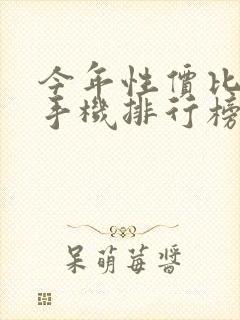 今年性價比
手機排行榜
呆萌莓醬